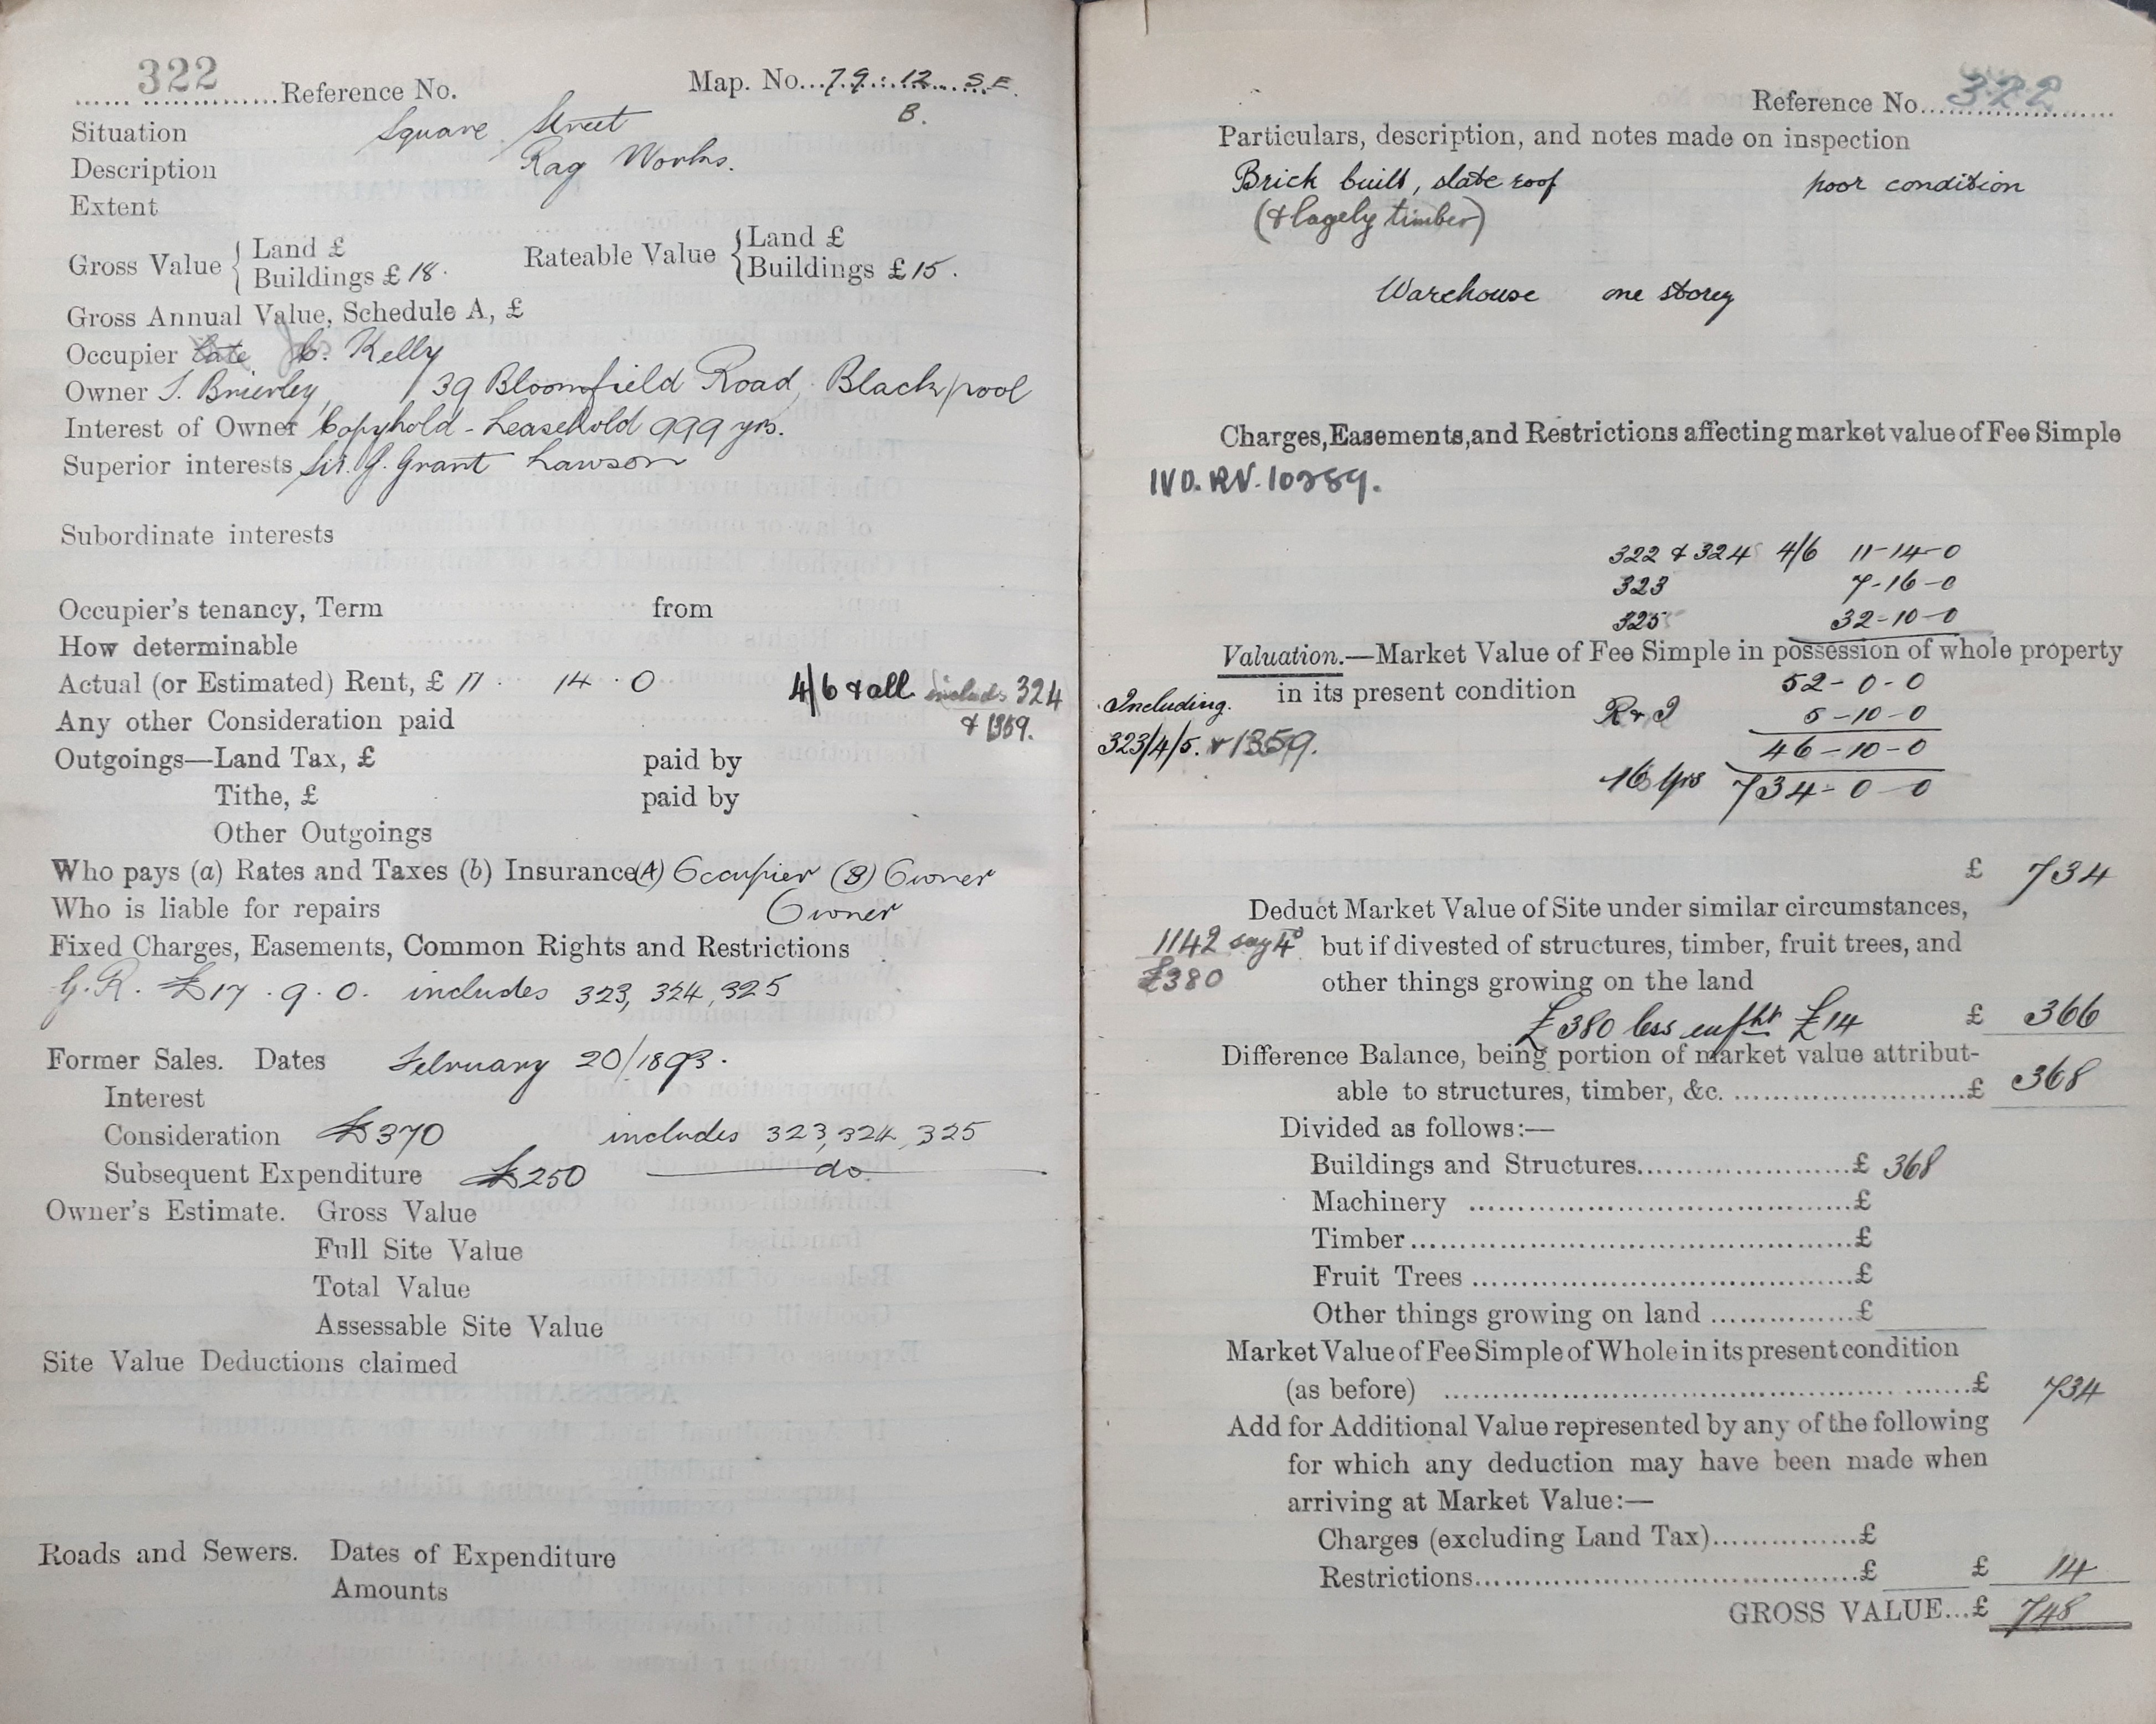 322 Reference No. Map. No. 79:12 S.E.
B.
Situation Square Street
Description Rag Works.
Extent
Gross Value { Land £
Buildings £ 18.
Rateable Value { Land £
Buildings £ 15.
Gross Annual Value, Schedule A, £
Occupier Late C. Kelly
Owner J. Brierley, 39 Bloomfield Road, Blackpool
Interest of Owner Copyhold - Leasehold 999 yrs.
Superior interests Sir. J. Grant Lawson
Subordinate interests
Occupier's tenancy, Term from
How determinable
Actual (or Estimated) Rent, £ 11 . 14 . 0 4/6 & all includes 324
& 1359.
Any other Consideration paid
Outgoings—Land Tax, £ paid by
Tithe, £ paid by
Other Outgoings
Who pays (a) Rates and Taxes (b) Insurance (A) Occupier (B) Owner
Who is liable for repairs Owner
Fixed Charges, Easements, Common Rights and Restrictions
G.R. £17 . 9 . 0. includes 323, 324, 325
Former Sales. Dates February 20/1893.
Interest
Consideration £370 includes 323, 324, 325
Subsequent Expenditure £250 do
Owner's Estimate. Gross Value
Full Site Value
Total Value
Assessable Site Value
Site Value Deductions claimed
Roads and Sewers. Dates of Expenditure
Amounts
Reference No. 322
Particulars, description, and notes made on inspection
Brick built, slate roof poor condition
(& lagely timber)
Warehouse one storey
Charges, Easements, and Restrictions affecting market value of Fee Simple
IVD. RV. 10289.
322 & 324 4/6 11-14-0
323 7-16-0
325 32-10-0
Valuation.—Market Value of Fee Simple in possession of whole property
in its present condition 52-0-0
Including R & I 5-10-0
323/4/5. & 1359. 46-10-0
16 yrs 734-0-0
£ 734
Deduct Market Value of Site under similar circumstances,
1142 say 4° but if divested of structures, timber, fruit trees, and
£380 other things growing on the land
£380 less enfht £14 £ 366
Difference Balance, being portion of market value attribut-
able to structures, timber, &c. £ 368
Divided as follows:—
Buildings and Structures £ 368
Machinery £
Timber £
Fruit Trees £
Other things growing on land £
Market Value of Fee Simple of Whole in its present condition
(as before) £ 734
Add for Additional Value represented by any of the following
for which any deduction may have been made when
arriving at Market Value:—
Charges (excluding Land Tax) £
Restrictions £ £ 14
GROSS VALUE...£ 748